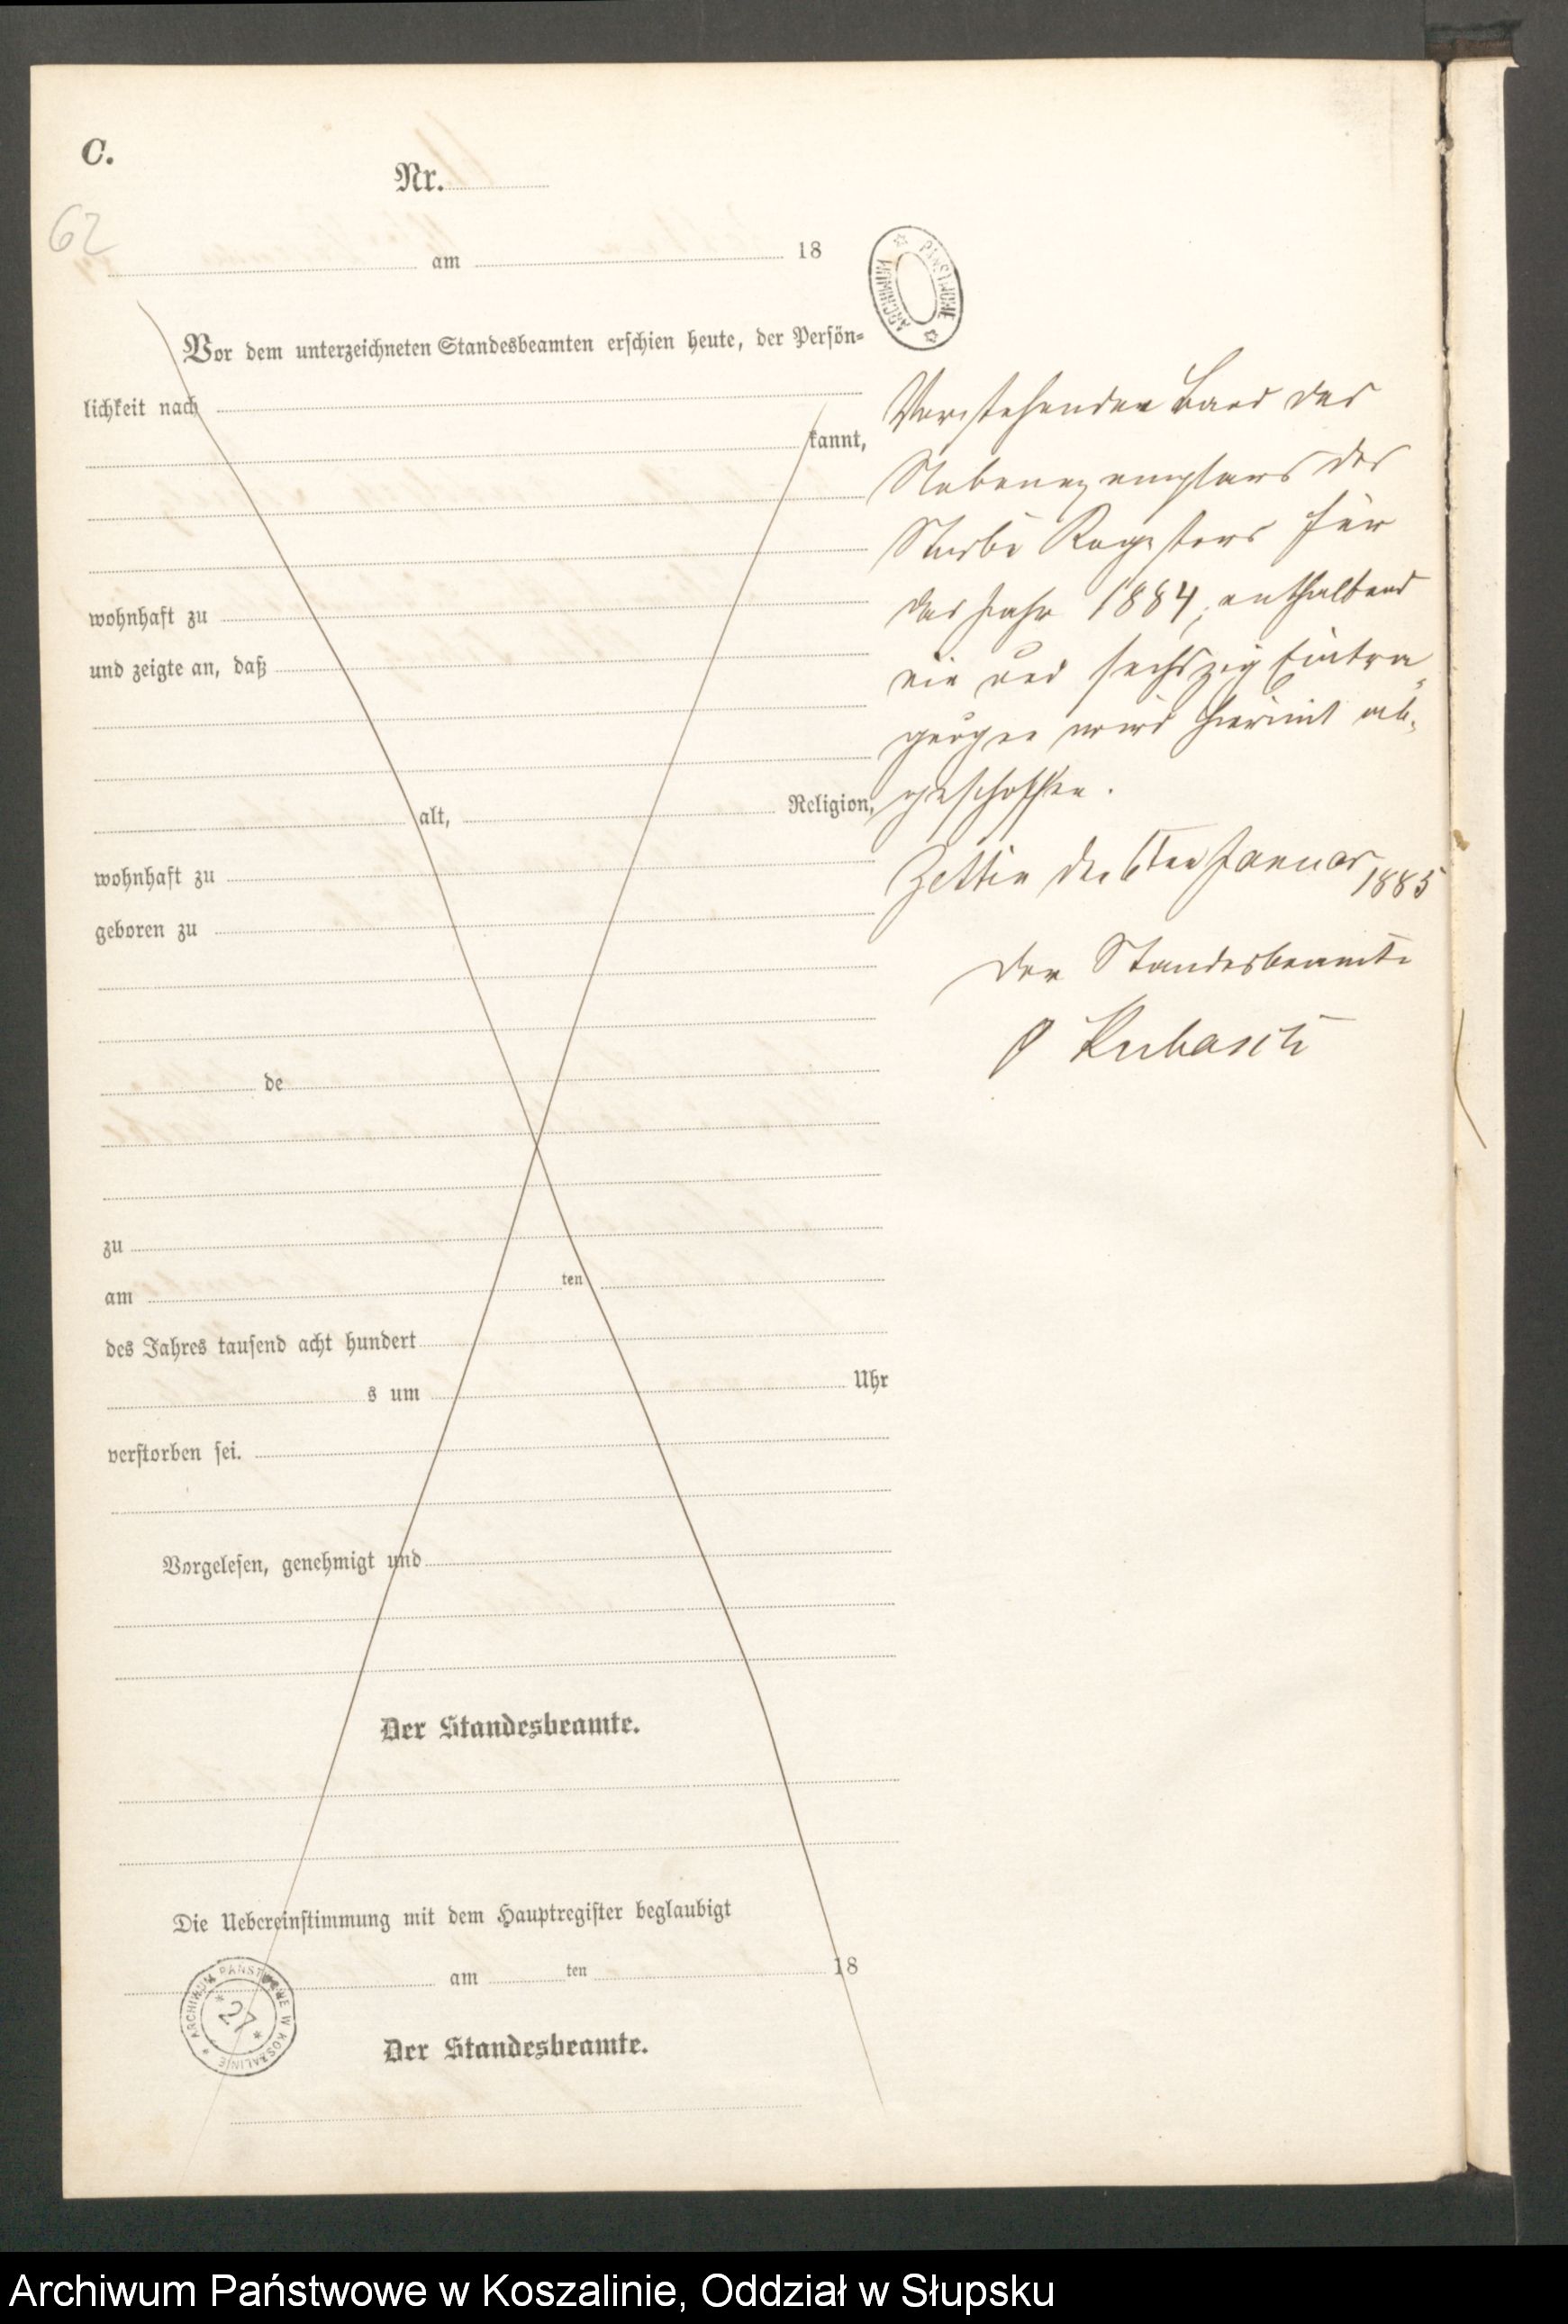 C.
Nr.
62
am 18
ARCHIWUM PAŃSTWOWE
Vor dem unterzeichneten Standesbeamten erschien heute, der Persön-
lichkeit nach
kannt,
wohnhaft zu
und zeigte an, daß
alt, Religion,
wohnhaft zu
geboren zu
de
zu
am ten
des Jahres tausend acht hundert
s um Uhr
verstorben sei.
Vorgelesen, genehmigt und
Der Standesbeamte.
Die Uebereinstimmung mit dem Hauptregister beglaubigt
am ten 18
Der Standesbeamte.
ARCHIWUM PAŃSTWOWE W KOSZALINIE
27
Vorstehender Band des
Nebenexemplars des
Sterbe Registers für
das Jahr 1884, enthaltend
ein und sechszig Eintra-
gungen wird hiermit ab-
geschlossen.
Zettin den 6ten Januar 1885
Der Standesbeamte
Kubasch
Archiwum Państwowe w Koszalinie, Oddział w Słupsku